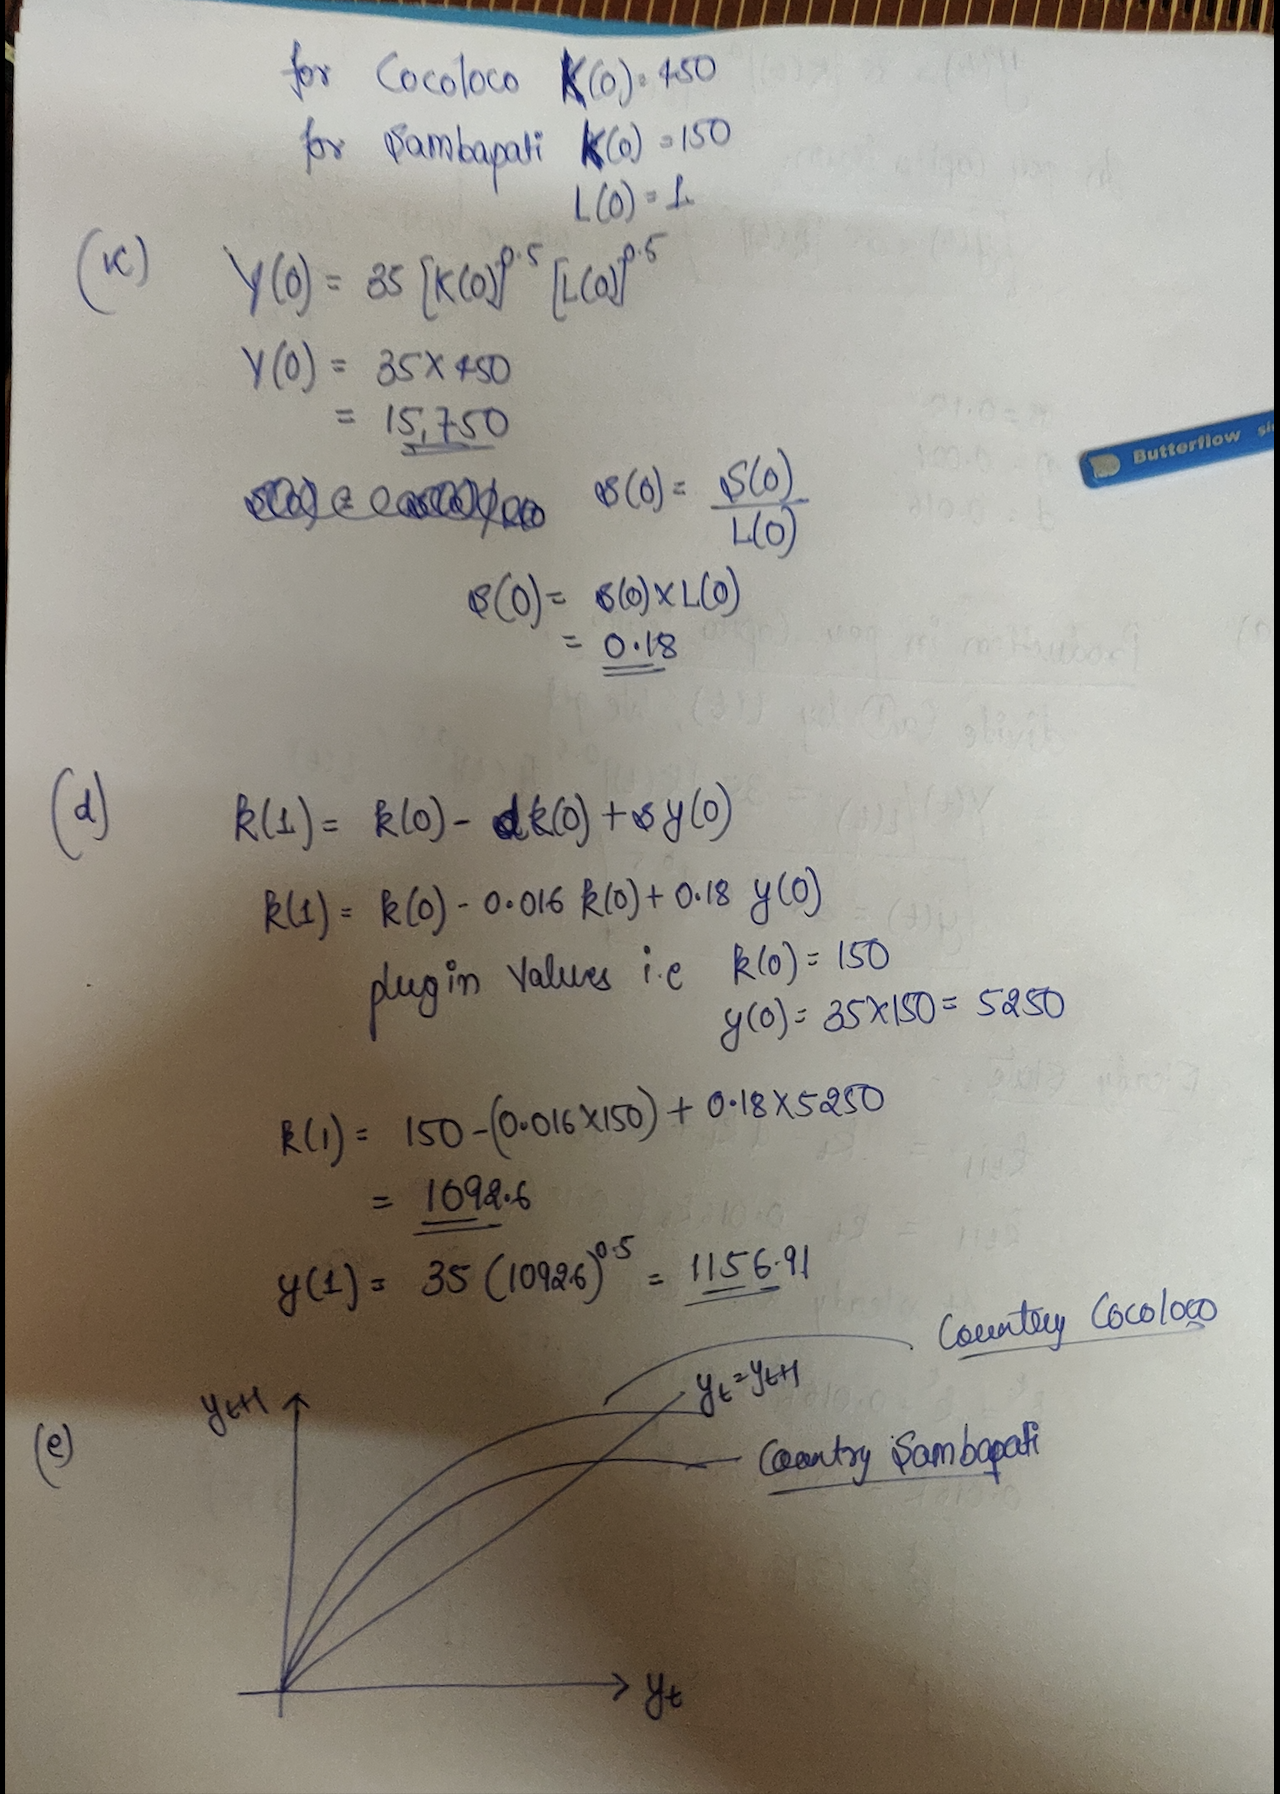 for Cocoloco K(0) = 450
for Sambapati K(0) = 150
L(0) = 1
(c) Y(0) = 35 [K(0)]^0.5 [L(0)]^0.5
Y(0) = 35 × 450
= 15,750
s(0) = S(0) / L(0)
s(0) = s(0) × L(0)
= 0.18
(d) k(1) = k(0) - dk(0) + sy(0)
k(1) = k(0) - 0.016 k(0) + 0.18 y(0)
plugin values i.e k(0) = 150
y(0) = 35×150 = 5250
k(1) = 150 - (0.016×150) + 0.18×5250
= 1092.6
y(1) = 35 (1092.6)^0.5 = 1156.91
Country Cocoloco
(e) yt+1
yt = yt+1
Country Sambapati
yt
Butterflow